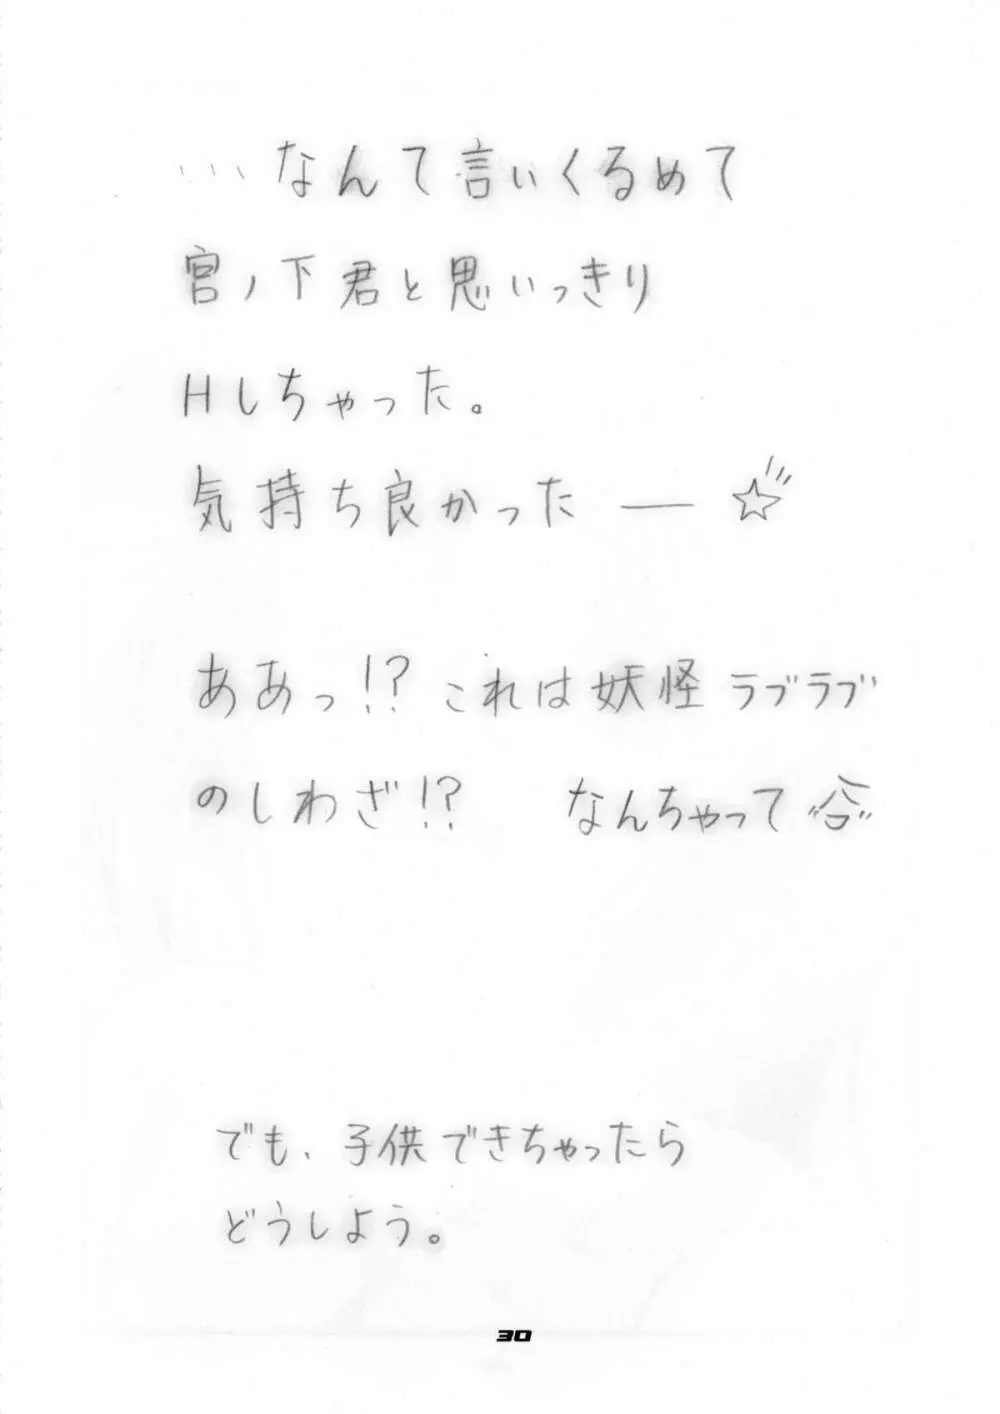 …なんて言いくるめて
宮ノ下君と思いっきり
Hしちゃった。
気持ち良かったー☆
ああっ!?これは妖怪ラブラブ
のしわざ!? なんちゃって
でも、子供できちゃったら
どうしよう。
30